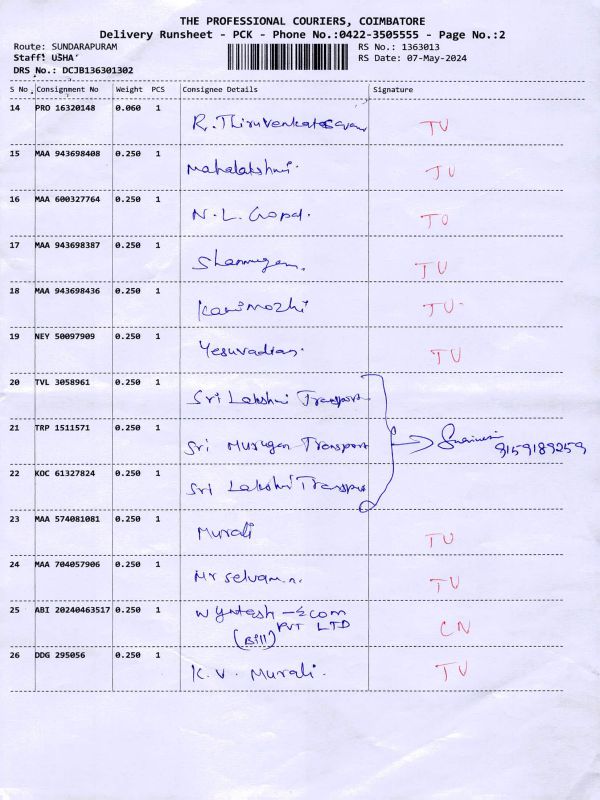 THE PROFESSIONAL COURIERS, COIMBATORE
Delivery Runsheet - PCK - Phone No.:0422-3505555 - Page No.:2
Route: SUNDARAPURAM
RS No.: 1363013
Staff: USHA
RS Date: 07-May-2024
DRS No.: DCJB136301302
S No. Consignment No Weight PCS Consignee Details Signature
14 PRO 16320148 0.060 1 R. Thiruvenkatesavan TU
15 MAA 943698408 0.250 1 Mahalakshmi. TU
16 MAA 600327764 0.250 1 N. L. Gopal. TU
17 MAA 943698387 0.250 1 Shanmugam. TU
18 MAA 943698436 0.250 1 Kanimozhi TU
19 NEY 50097909 0.250 1 Yesuvadian. TU
20 TVL 3058961 0.250 1 Sri Lakshmi Transport
21 TRP 1511571 0.250 1 Sri Murugan Transport 9159189259
22 KOC 61327824 0.250 1 Sri Lakshmi Transport
23 MAA 574081081 0.250 1 Murali TU
24 MAA 704057906 0.250 1 Mr Selvam.n. TU
25 ABI 20240463517 0.250 1 -Ecom CN
PVT LTD
(Bill)
26 DDG 295056 0.250 1 K. V. Murali. TU